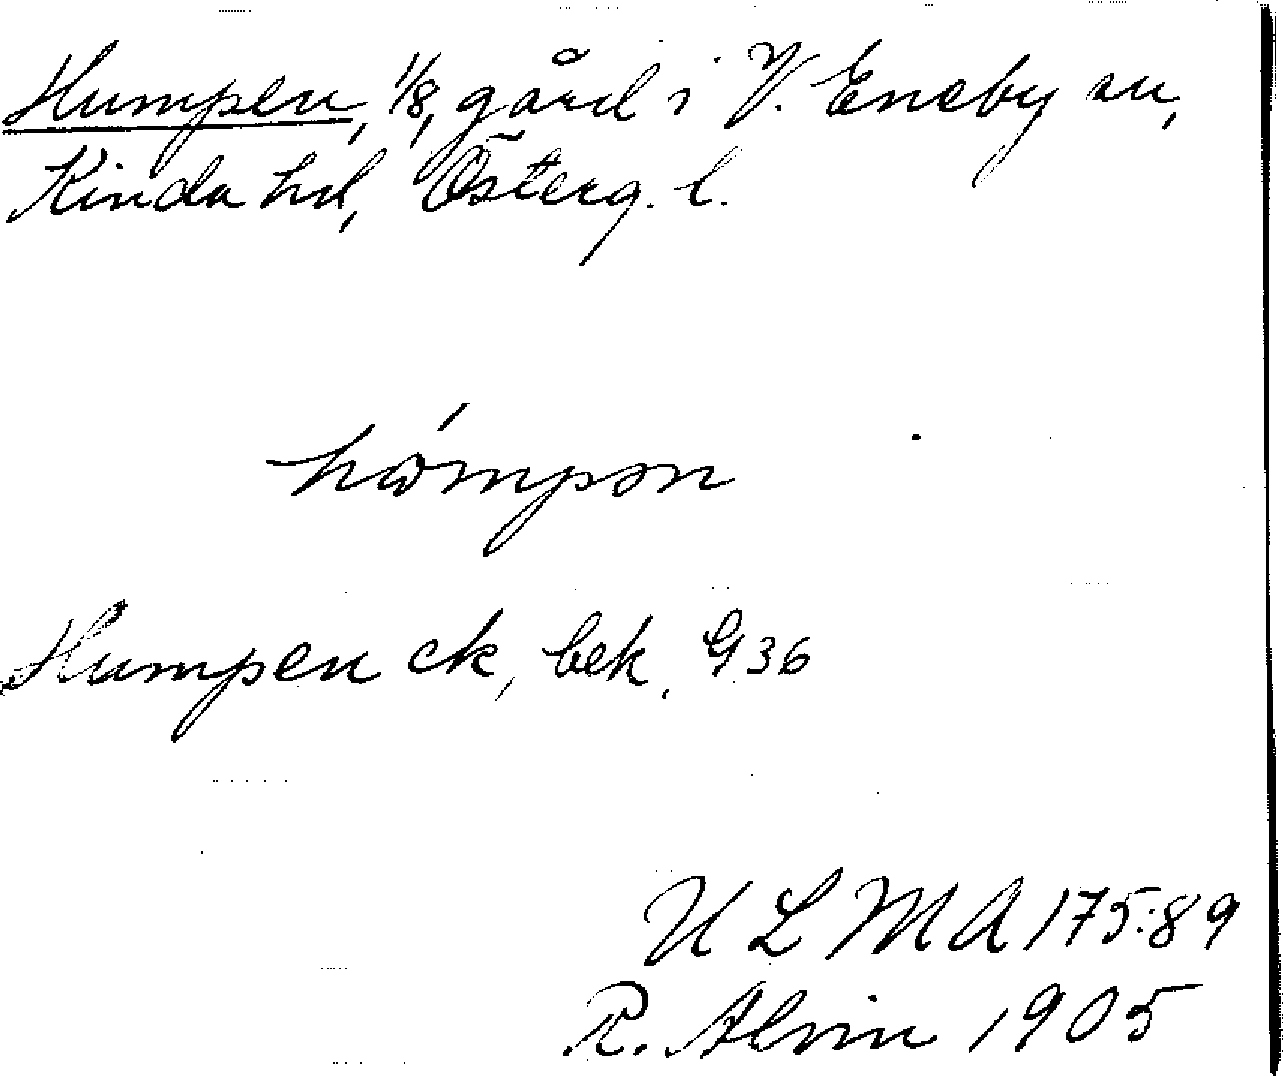 Humpen, 1/8, gård i V. Eneby sn,
Kinda hd, Österg. l.
hɷ́mpən
Humpen ek, bek. G 36
U L M A 175:89
R. Alvin 1905